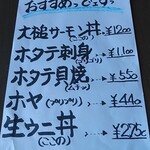 おすすめっどぇす
大槌サーモン丼 ¥1200
ホタテ刺身 ¥1,100
ホタテ貝焼 ¥550
ホヤ (プリプリ) ¥440
生ウニ丼 ¥275